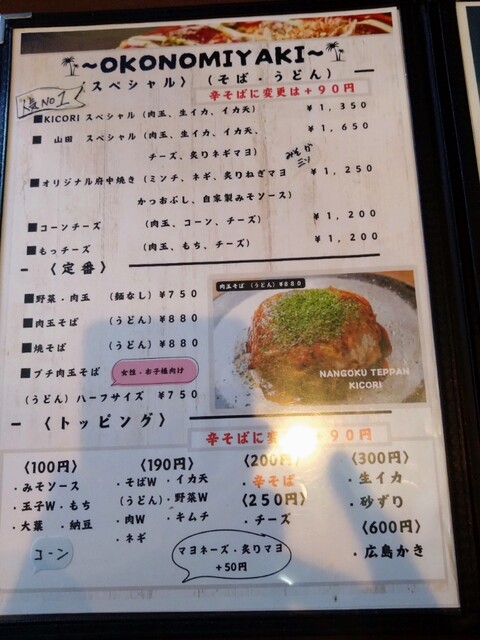 ~OKONOMIYAKI~
〈スペシャル〉（そば・うどん）
辛そばに変更は+90円
人気NO1
■KICORI スペシャル（肉玉、生イカ、イカ天） ￥1,350
■ 山田 スペシャル（肉玉、生イカ、イカ天、 ￥1,650
チーズ、炙りネギマヨ）
■オリジナル府中焼き（ミンチ、ネギ、炙りねぎマヨ ￥1,250
かつおぶし、自家製みそソース）
■コーンチーズ （肉玉、コーン、チーズ） ￥1,200
■もっチーズ （肉玉、もち、チーズ） ￥1,200
〈定番〉
■野菜・肉玉 （麺なし）￥750
■肉玉そば （うどん）￥880
■焼そば （うどん）￥880
■プチ肉玉そば 女性・お子様向け
（うどん）ハーフサイズ ￥750
肉玉そば（うどん）￥880
NANGOKU TEPPAN
KICORI
〈トッピング〉
辛そばに変更は+90円
〈100円〉
・みそソース
・玉子W・もち
・大葉 ・納豆
コーン
〈190円〉
・そばW ・イカ天
（うどん）・野菜W
・肉W ・キムチ
・ネギ
〈200円〉
・辛そば
〈250円〉
・チーズ
マヨネーズ・炙りマヨ
+50円
〈300円〉
・生イカ
・砂ずり
〈600円〉
・広島かき